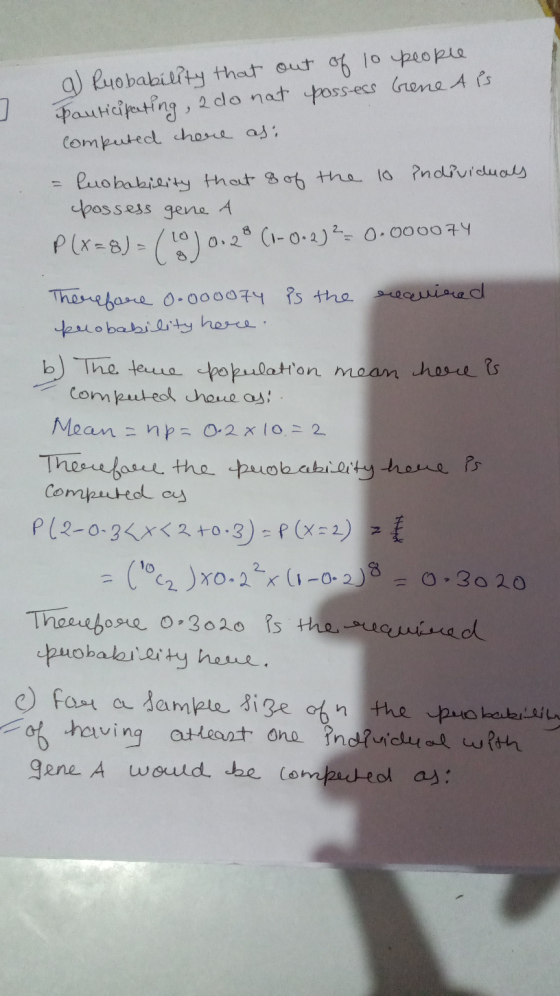 a) Probability that out of 10 people
participating, 2 do not possess Gene A is
computed here as:
= Probability that 8 of the 10 individuals
possess gene A
P(X=8) = (10 8) 0.2⁸ (1-0.2)² = 0.000074
Therefore 0.000074 is the required
probability here.
b) The true population mean here is
computed here as:
Mean = np = 0.2 × 10 = 2
Therefore the probability here is
computed as
P(2-0.3<x<2+0.3) = P(x=2) =
= (¹⁰C₂) × 0.2² × (1-0.2)⁸ = 0.3020
Therefore 0.3020 is the required
probability here.
c) For a sample size of n the probability
of having atleast one individual with
gene A would be computed as: